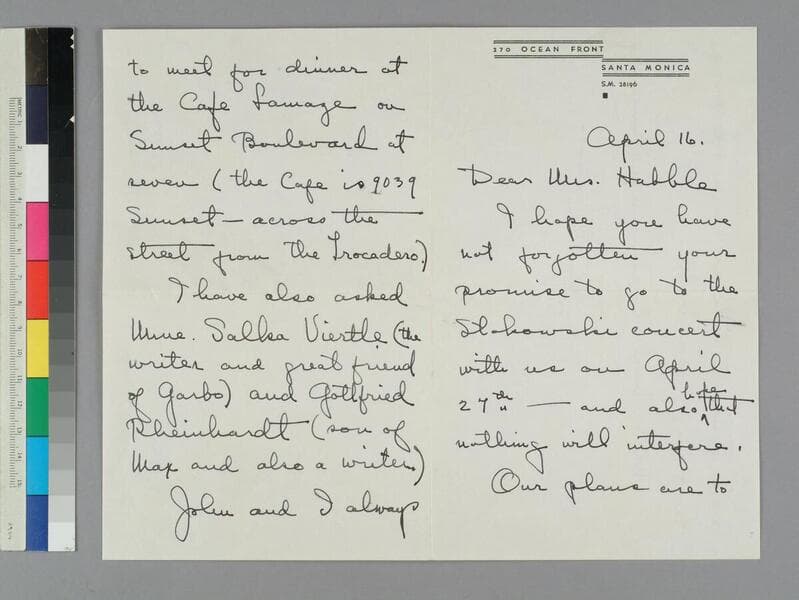 270 OCEAN FRONT
SANTA MONICA
S.M. 28196
April 16.
Dear Mrs. Hubble
I hope you have
not forgotten your
promise to go to the
Stokowski concert
with us on April
27th — and also hope that
nothing will interfere.
Our plans are to
to meet for dinner at
the Cafe Lamaze on
Sunset Boulevard at
seven (the Cafe is 9039
Sunset — across the
street from the Trocadero.)
I have also asked
Mme. Salka Viertle (the
writer and great friend
of Garbo) and Gottfried
Rheinhardt (son of
Max and also a writer.)
John and I always